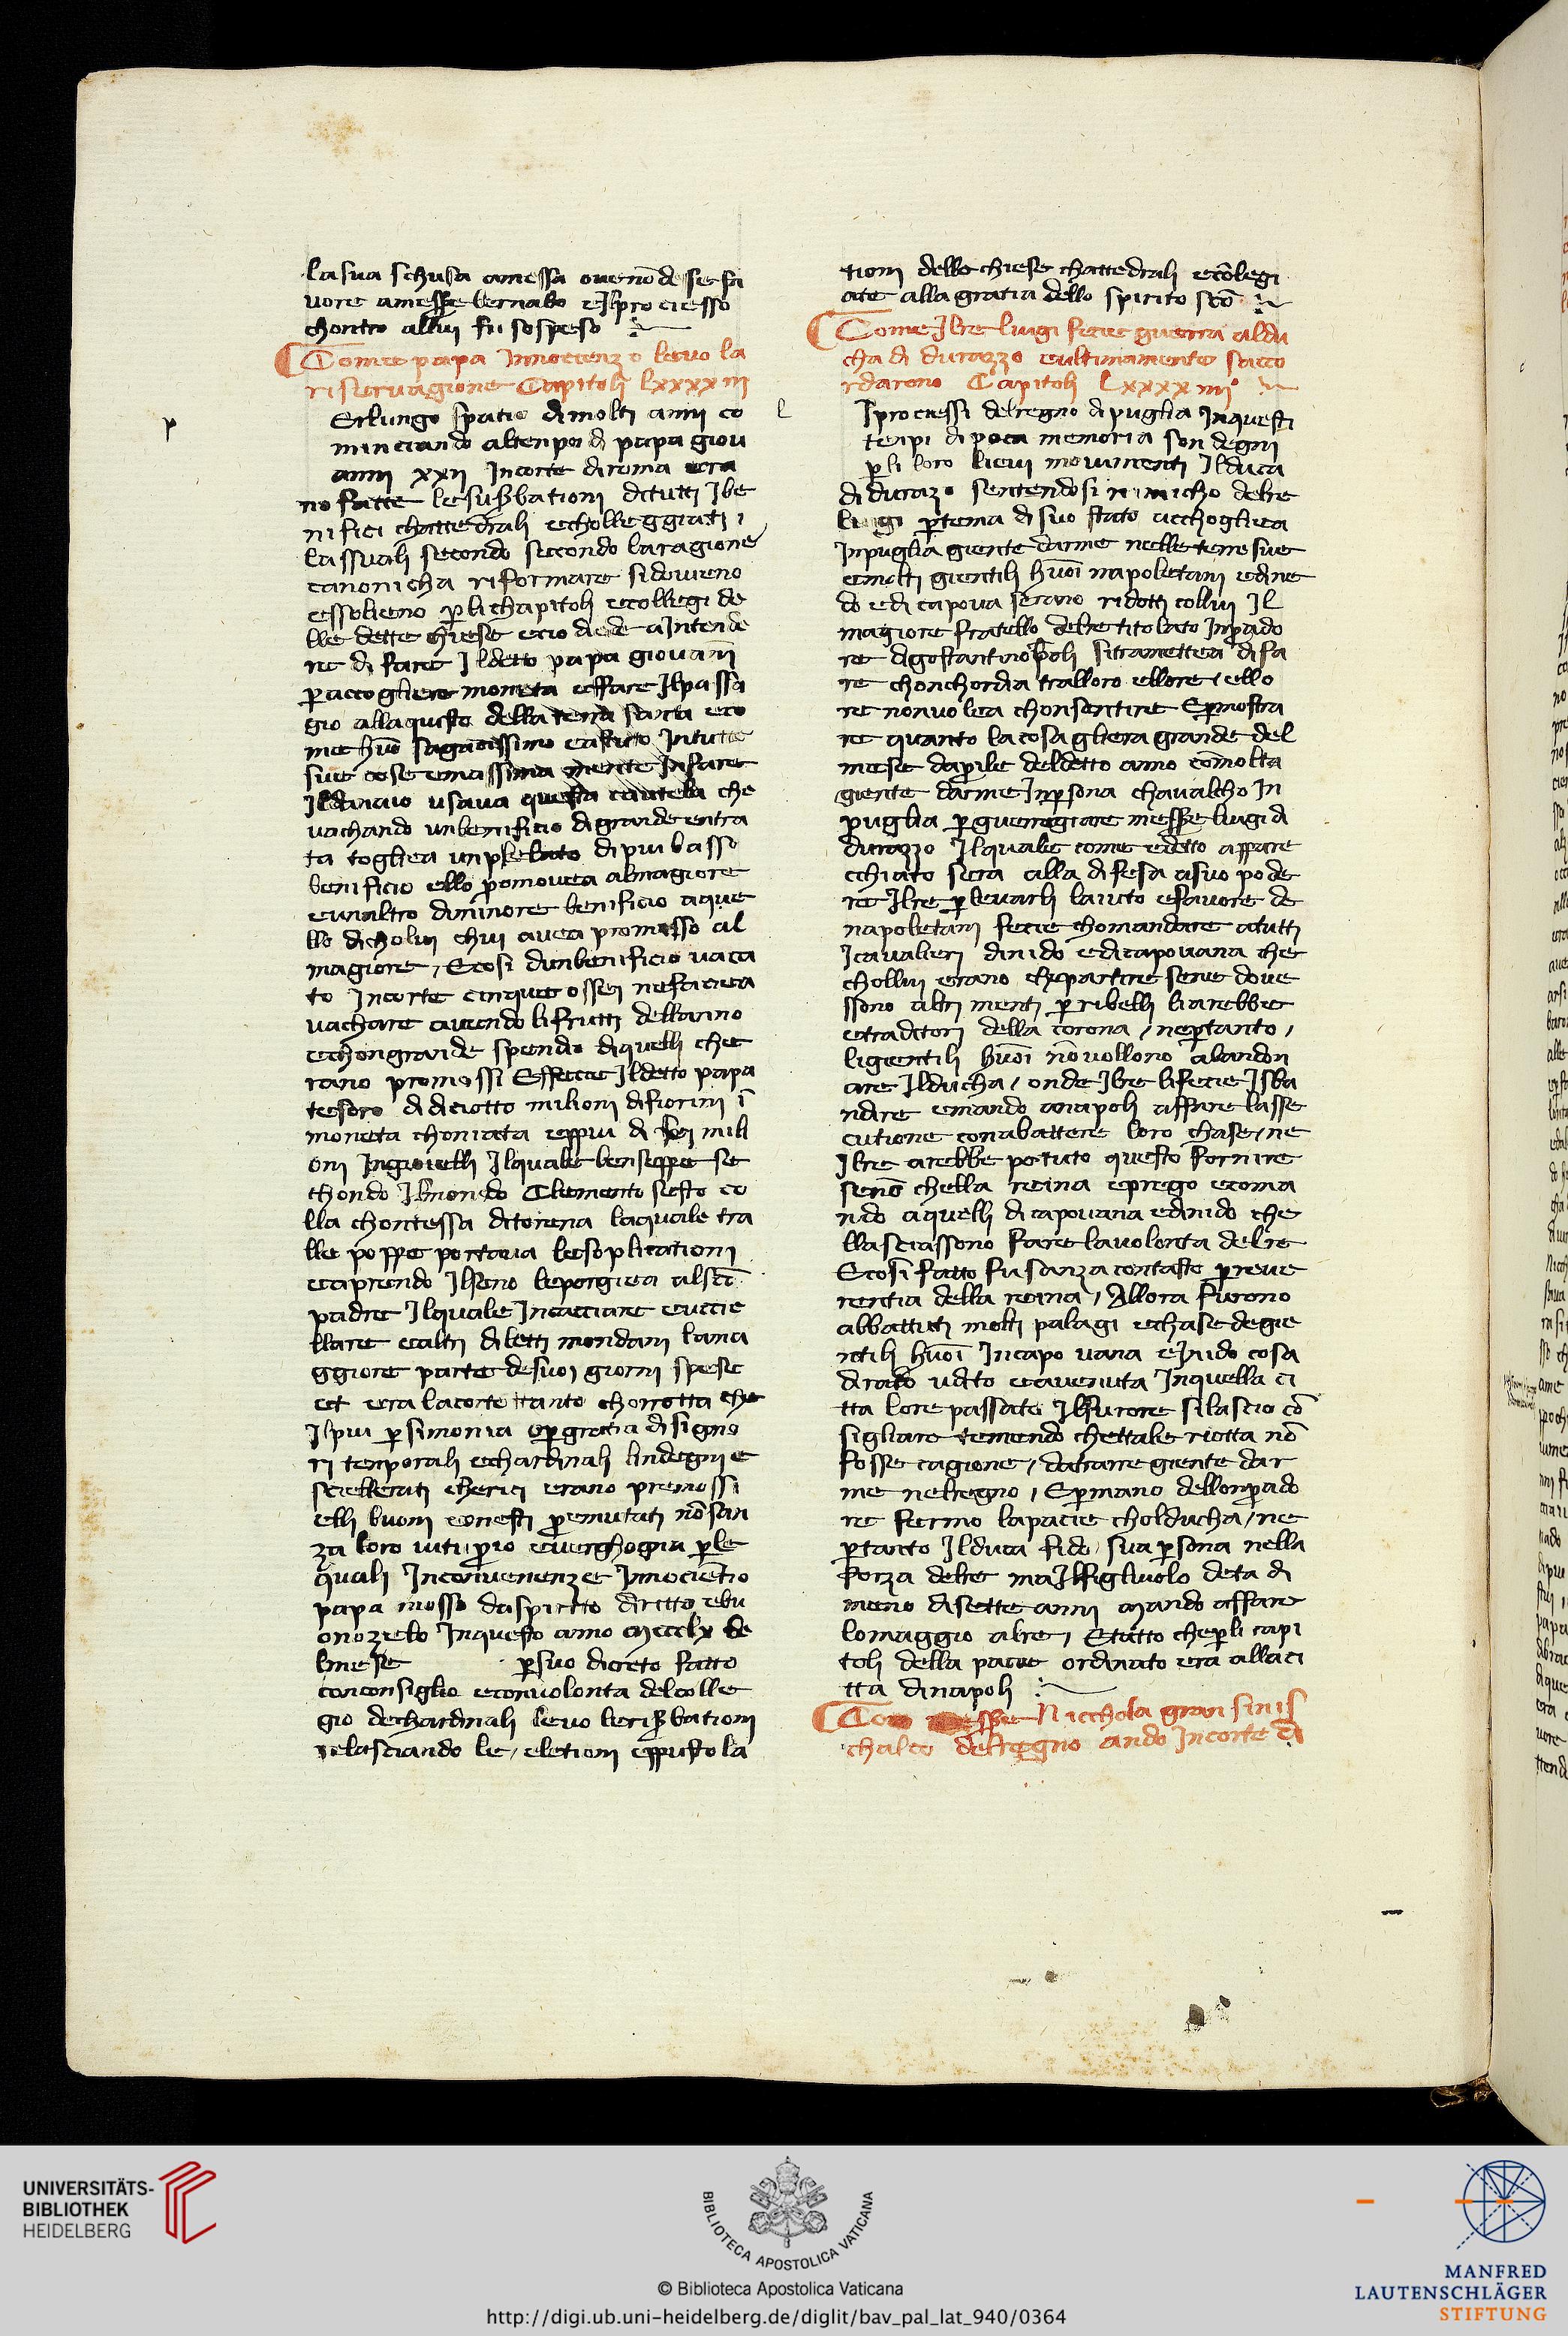 la sua schusa amessa ovenō de se fa
vore amesse bernabo e Il prociesso
chontro allui fu sospeso
Come papa Innocenzo levo la
riservagione Capitolj lxxxxiij
p
Er lungo spatio di molti annj co
minciando al tenpo di papa giov
annj xxij In corte di roma era
no fatte le suꝑbationi di tutti I be
nifici chattedralj e cholleggiati
la ssualj secondo secondo la ragione
canonicha riformare si dovieno
e ssolieno ꝑ li chapitolj e collegi de
lle dette chiese e cio diede a Intende
re di fare Il detto papa giovannj
ꝑ accogliere moneta e ffare Il passa
gio alla quisto della terra santa e co
me huō sagacissimo e astuto In tutte
sue cose e massima mente In fare
Il danaio usava questa cautela che
vachando un benificio di grande entra
ta togliea un plelato di piu basso
benificio ello promovea al magiore
e un altro di minore benificio a que
llo di cholui chui avea promesso al
magiore, E cosi d un benificio vaca
to In corte cinque o sseij ne faciea
vachare avendo li frutti dell anno
e chon grande spendio di quelli che
rano promossi E ffecie Il detto papa
tesoro di diciotto milioni di fiorini ī
moneta choniata e ppiu di seij mili
oni In gioielli Il quale ben seppe se
chondo Il mondo Clemento sesto co
lla chontessa di torena la quale tra
lle poppe portava le soplicationi
e aprendo Il seno le porgiea al scō
padre Il quale In cacciare e uccie
llare e altri diletti mondani la ma
ggiore parte de suoj giornj spese
et era la corte tanto chorrotta che
Il piu ꝑ simonia o ꝑ gratia di signo
ri tenporali e chardinali l indegni e
scellerati cherici erano promossi
elli buoni e onesti ꝑ emutati nō san
za loro vitupio e verghogna ꝑ le
quali Inconvenenze Innociētio
papa mosso da spirito diritto e bu
ono zelo In questo anno Mccclx de
l mese ꝑ suo dicreto fatto
con consiglio e con volonta del colle
gio de chardinali levo le riserbationi
rilasciando le eletioni e ppistola
tioni delle chiese chattedrali e cōlegi
ate alla gratia dello spirito scō
Come Il re luigi fecie guerra al du
cha di durazzo e ultimamente s acco
rdarono Capitolj lxxxxiiij°
l
I prociessi del regno di puglia In questi
tenpi di poca memoria son degni
ꝑ li loro lievi movimenti Il duca
di durazo sentendosi nimicho del re
luigi ꝑ tema di suo stato acchogliea
In puglia giente d arme nelle terre sue
e molti gientili huōi napoletani e di ne
do e di capova serano ridotti collui Il
magiore fratello del re titolato Inpado
re di gostantinopoli si tramettea di fa
re chonchordia tralloro e llo re, e llo
re non volea chonsentire E ꝑ mostra
re quanto la cosa gliera grande del
mese d aprile del detto anno cō molta
giente d arme In ꝑsona chavalcho In
puglia ꝑ guerregiare messe luigi di
durazzo Il quale come e detto appare
cchiato sera alla difesa a suo pode
re Il re ꝑ levarli l aiuto e favore de
napoletani fecie chomandare a tutti
I cavalieri di nido e di capovana che
chollui erano che partire sene dove
ssono altri menti ꝑ ribelli li arebbe
e traditori della corona, ne ꝑ tanto,
li gientili huōi nō vollono abandon
are Il ducha, onde Il re li fecie I sba
ndire e mando a napoli a ffare la sse
cutione con abattere loro chase, ne
Il re arebbe potuto questo fornire
senō chella reina e prego e coma
ndo a quelli di capovana e di nido che
lla sciassono fare la volonta del re
E cosi fatto fu sanza contasto ꝑ reve
rentia della reina, Allora furono
abbattuti molti palagi e chase de gie
ntili huōi In capo vana e I nido cosa
di rado udito e avenuta In quella ci
tta l ore passate Il furore si lascio cō
sigliare temendo che ttale riotta nō
fosse cagione, da trarre giente d ar
me nel regno, E ꝑ mano dell onpado
re fermo la pacie chol ducha, ne
ꝑ tanto Il duca fido, sua ꝑsona nella
forza del re ma Il figliuolo d eta di
meno di sette anni mando a ffare
l omaggio al re, E tutto che ꝑ li capi
toli della pacie ordinato era alla ci
tta di napoli
Come messe Nicchola gran sinis
chalco del regno ando In corte di
UNIVERSITÄTS-
BIBLIOTHEK
HEIDELBERG
BIBLIOTECA APOSTOLICA VATICANA
© Biblioteca Apostolica Vaticana
http://digi.ub.uni-heidelberg.de/diglit/bav_pal_lat_940/0364
MANFRED
LAUTENSCHLÄGER
STIFTUNG